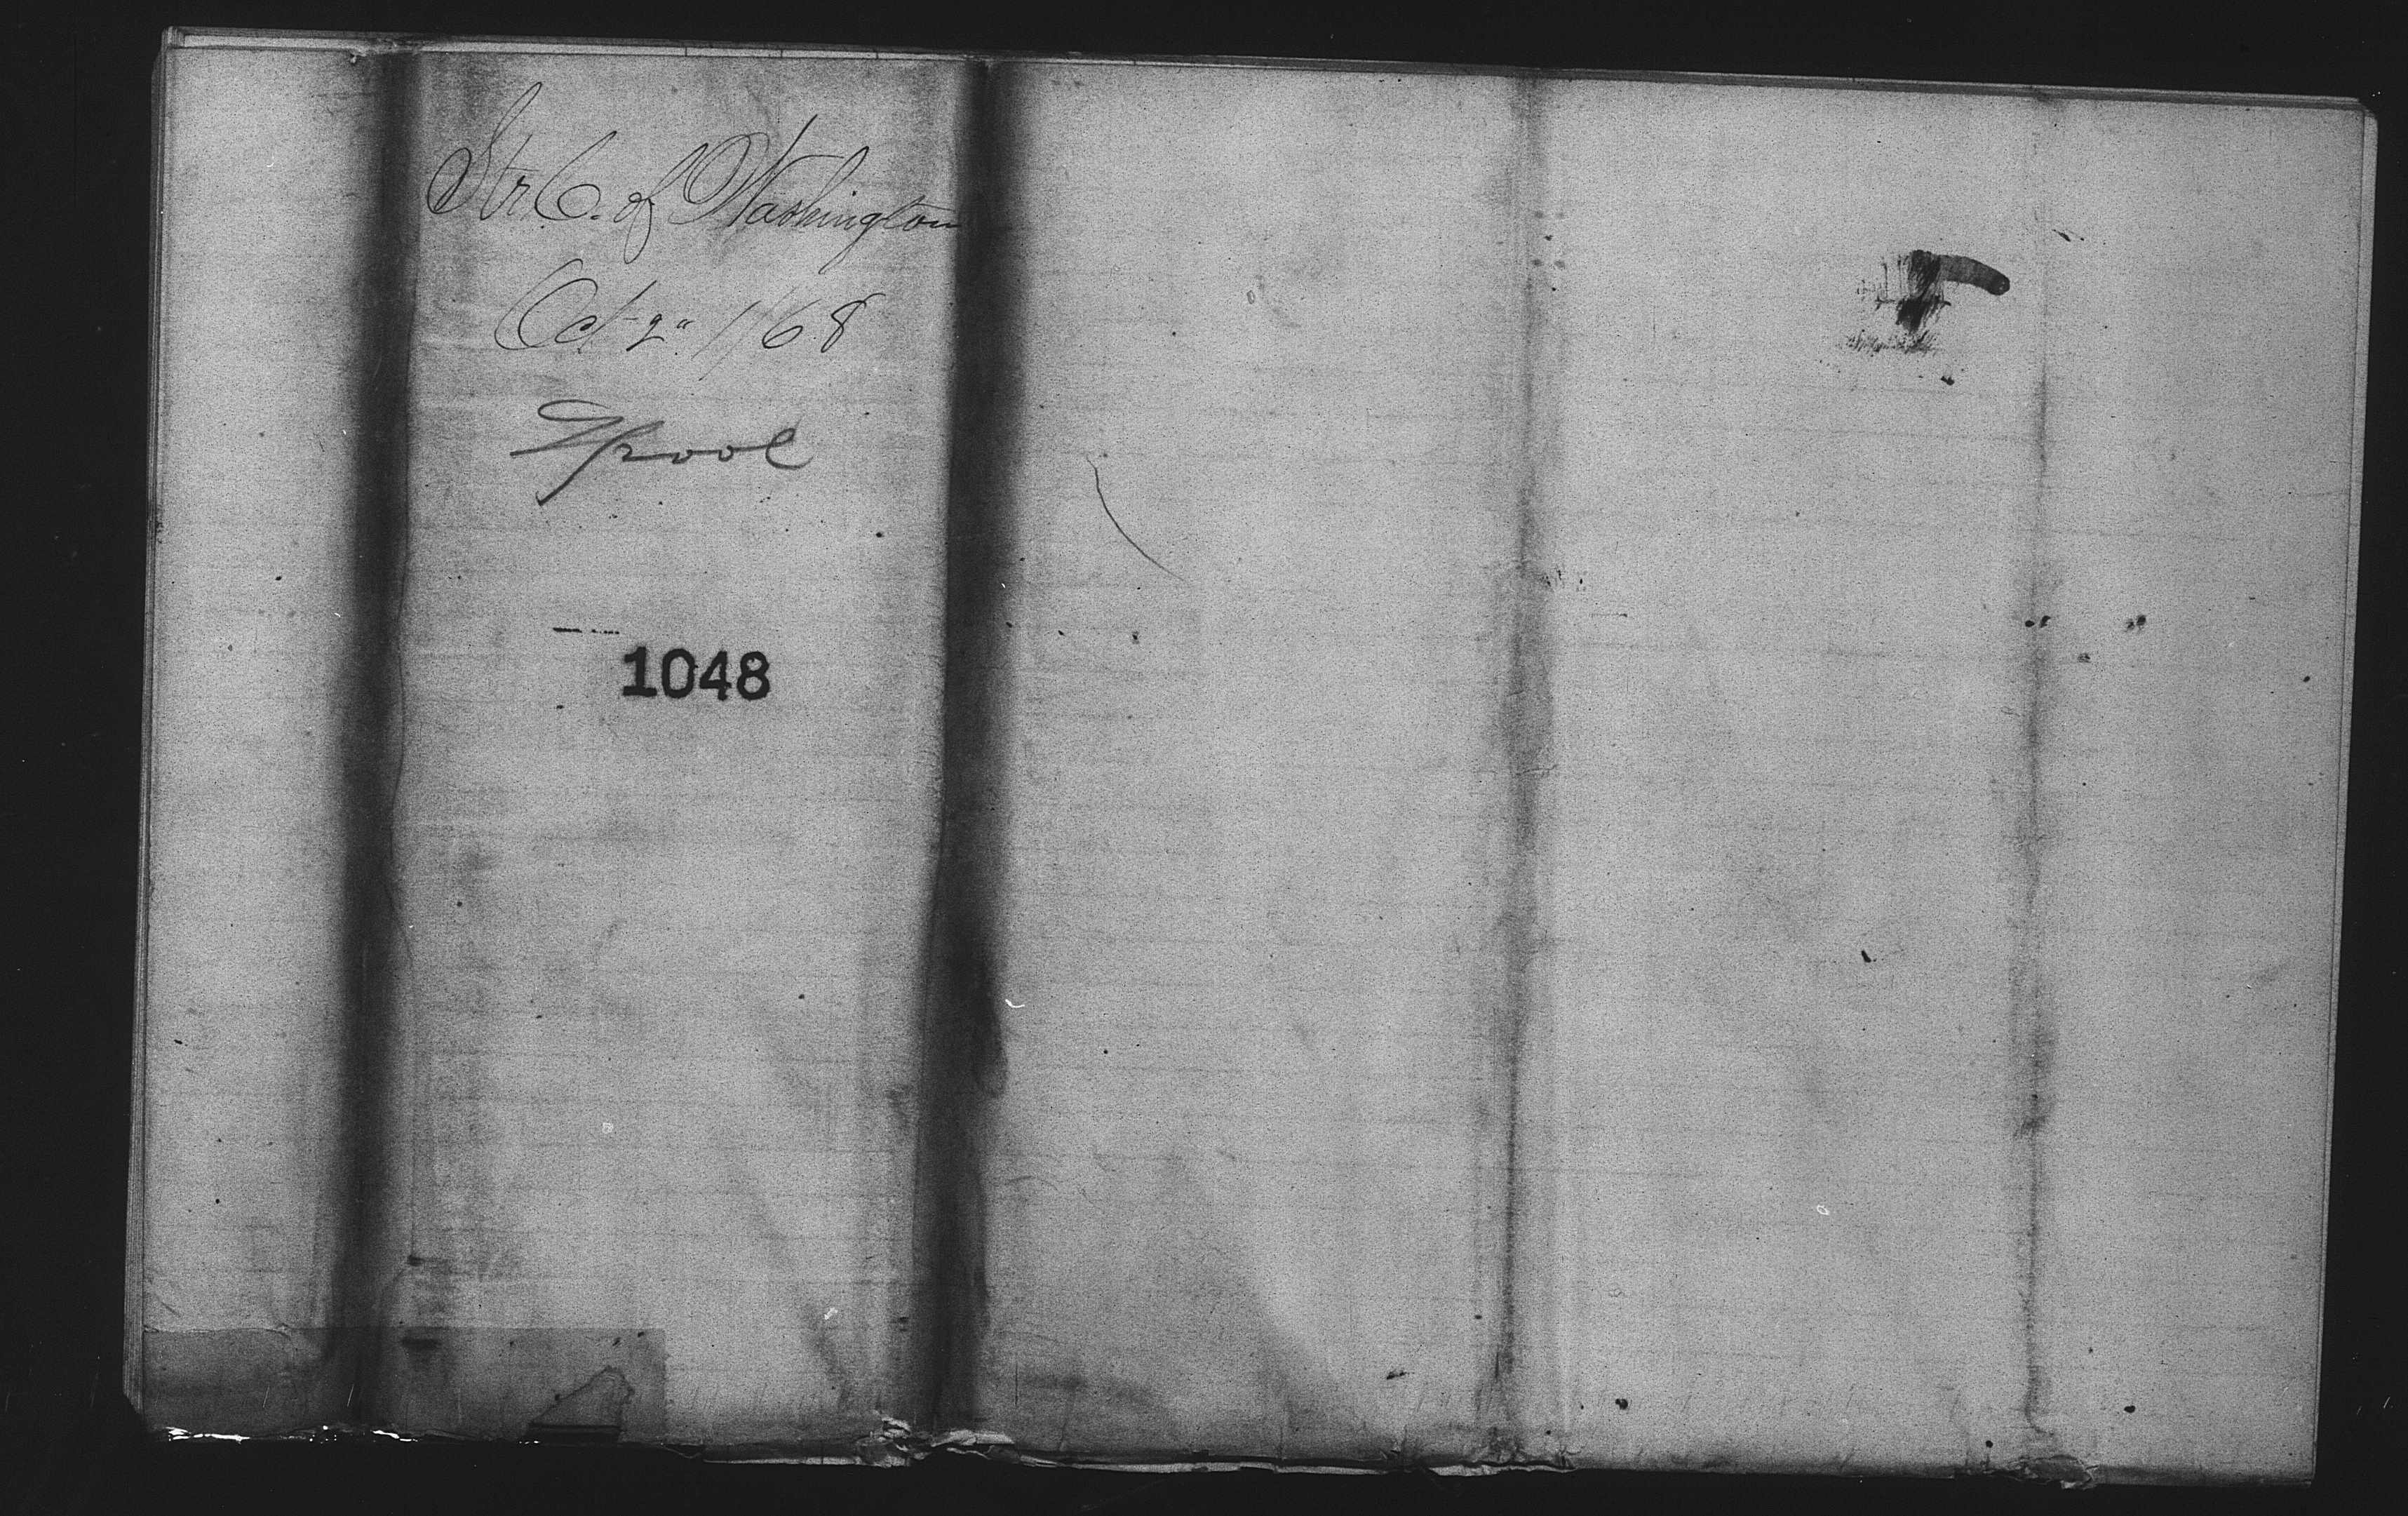 Str C. of Washington
Oct 2" 1868
Lpool
1048